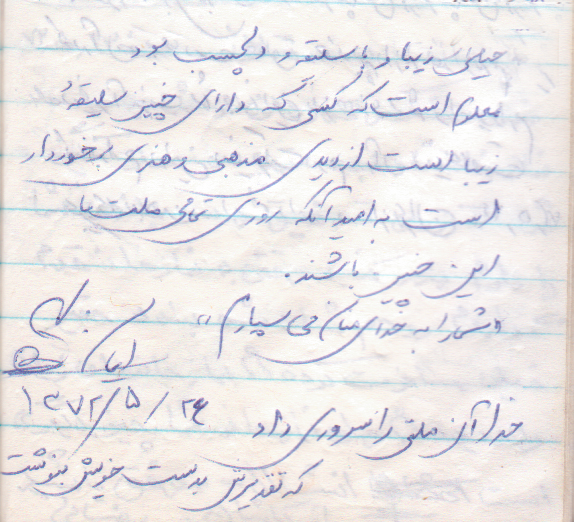 خیلی زیبا و با سلیقه و دلچسب بود
معلوم است که کسی که دارای چنین سلیقهٔ
زیبا است از دیدی مذهبی و هنری برخوردار
است به امید آنکه روزی تمامی ملت ما
این چنین باشند.
و شما را به خدای منان می سپارم "
۱۳۷۲/۵/۲۶
خدا آن ملتی را سروری داد
که تقدیرش بدست خویش بنوشت